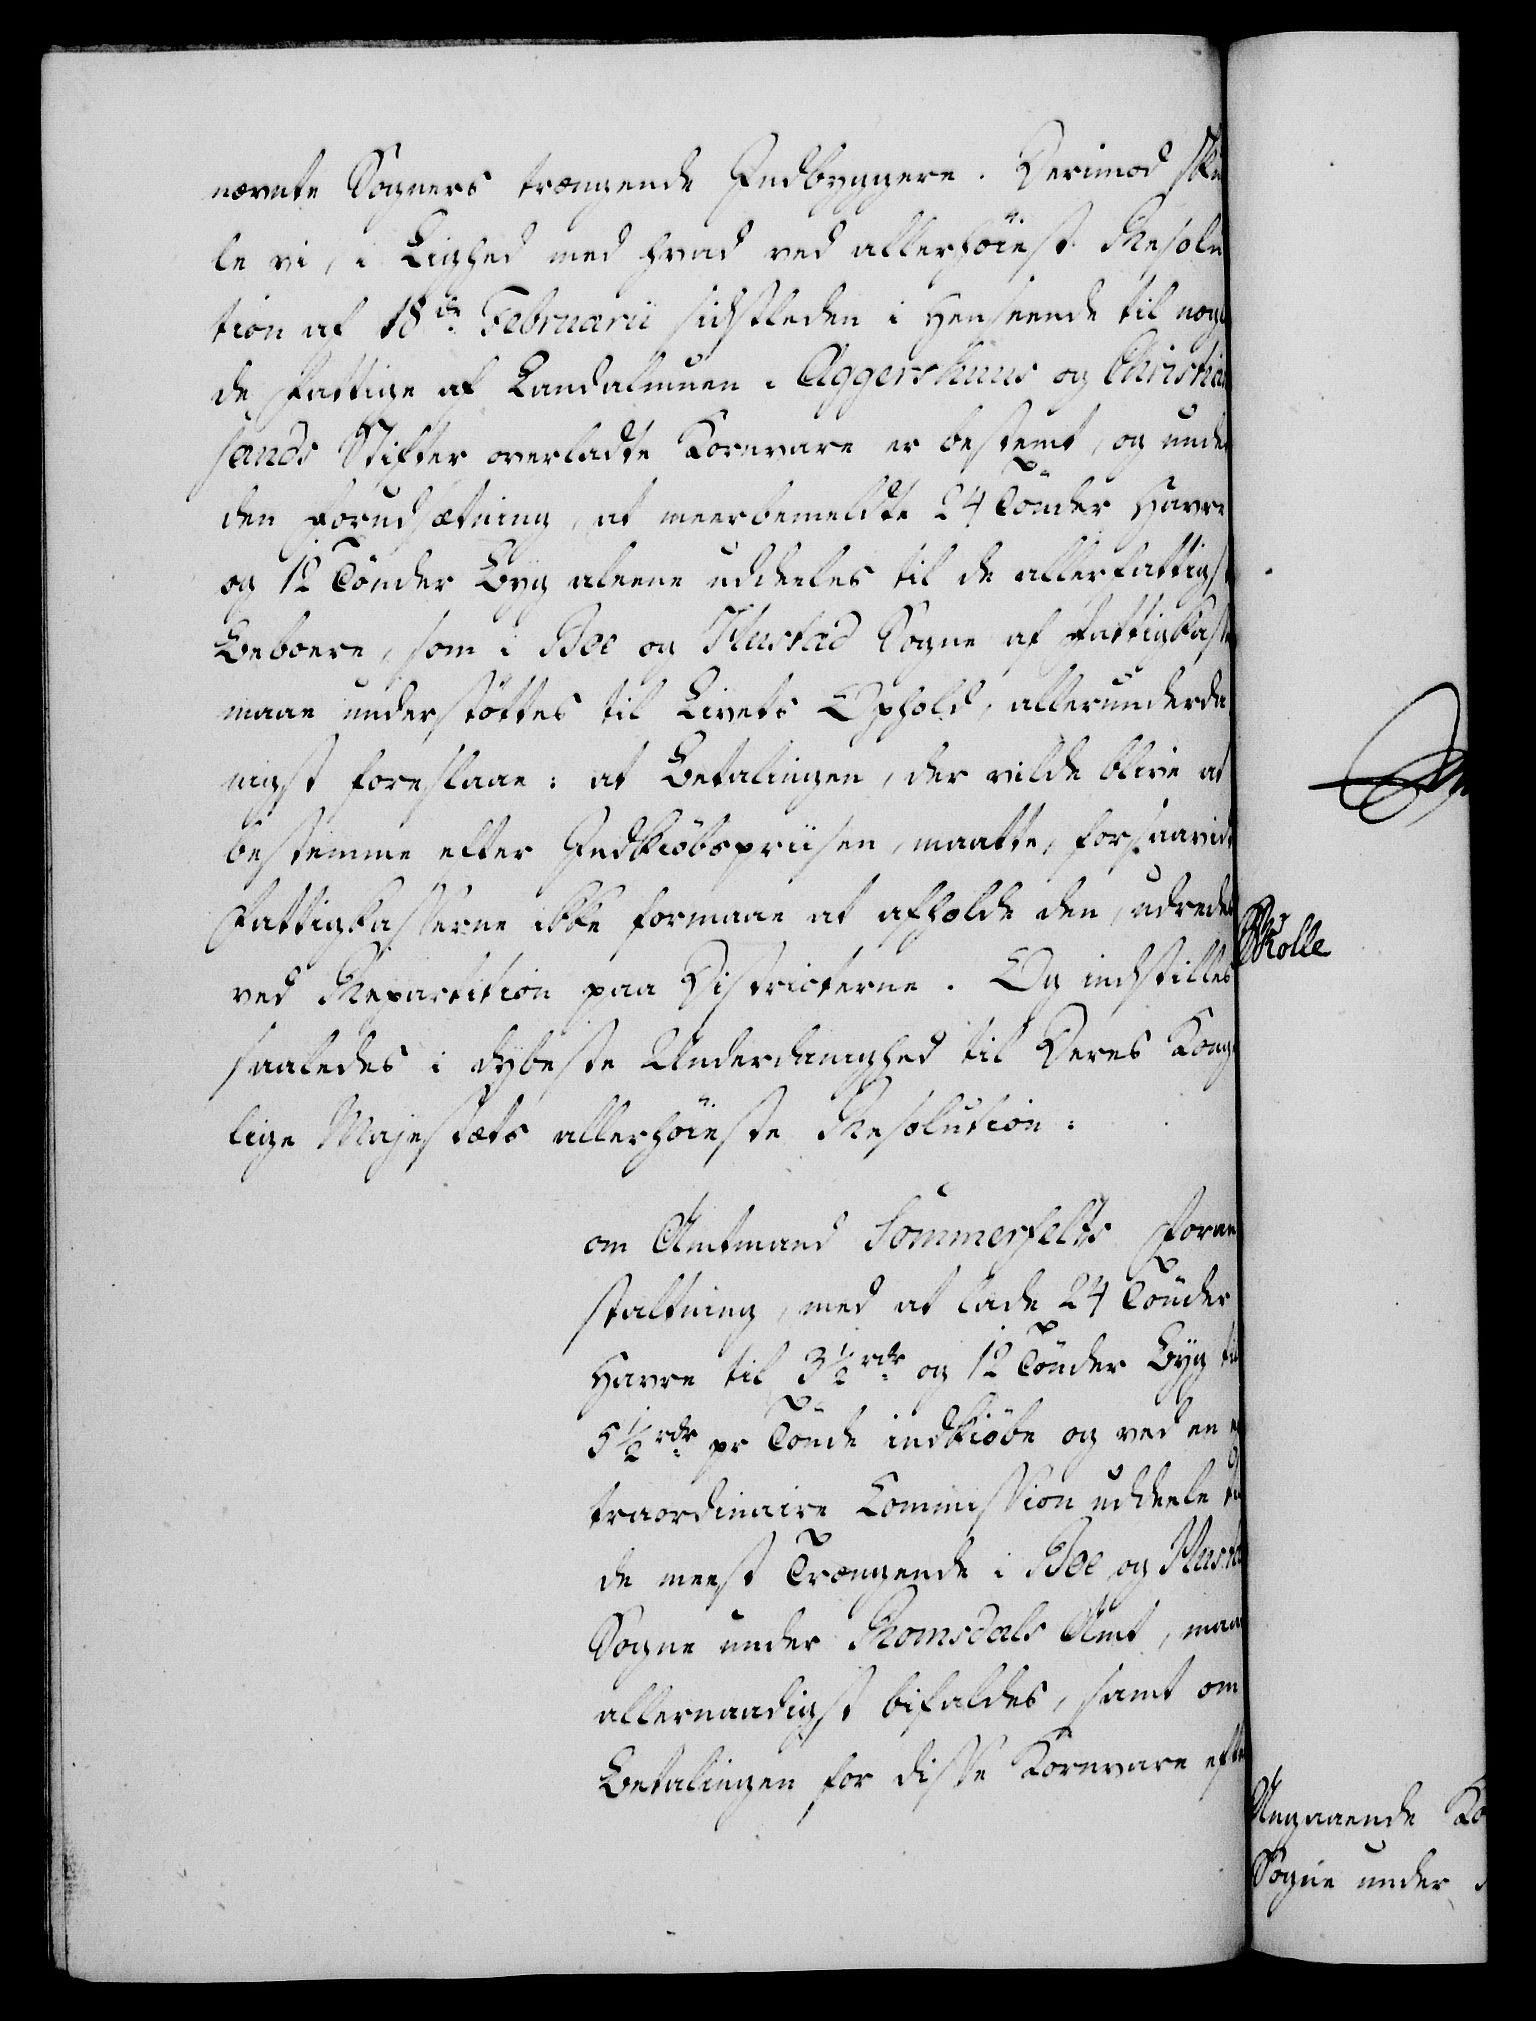 nævnte Sogners trængende Indbyggere. Derimod skul
le vi, i Liighed med hvad ved allerhöiest Resolu
tion af 18de Februarii sidstleden i Henseende til nogle
de Fattige af Landalmuen i Aggershuus og Christian
sands Stifter overladte Kornvare er bestemt, og under
den Forudsætning, at meerbemeldte 24 Tönder Havre
og 12 Tönder Byg aleene uddeeles til de allerfattigste
Beboere, som i Boe og Hustad Sogne af Fattigkassen
maae understöttes til Livets Ophold, allerunderda
nigst foreslaae: at Betalingen, der vilde blive at
bestemme efter Indkiöbspriisen, maatte, forsaavidt
Fattigkasserne ikke formaae at afholde den, udredes
ved Repartition paa Districterne. Og indstilles
saaledes i dybeste Underdanighed til Deres Konge
lige Majestæts allerhöieste Resolution:
om Amtmand Sommerfelts Foran
staltning, med at lade 24 Tönder
Havre til 3 1/2 rdr og 12 Tönder Byg til
5 1/2 rdr pr Tönde indkiöbe og ved en ex
traordinaire Commission uddeele til
de meest Trængende i Boe og Hustad
Sogne under Romsdals Amt, maae
allernaadigst bifaldes, samt om
Betalingen for disse Kornvare efter
Molle
Angaaende Ko
Sogne under